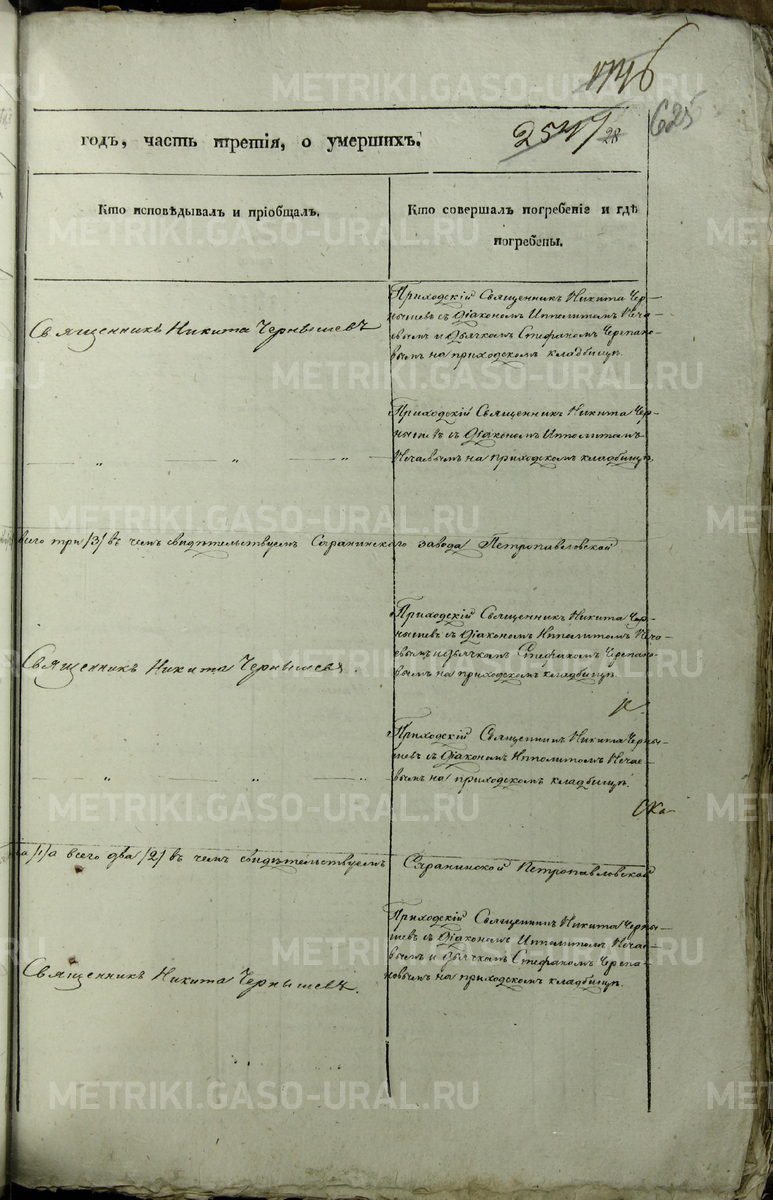 1746
625
годъ, часть третія, о умершихъ.
2547 28
Кто исповѣдывалъ и пріобщалъ.
Кто совершалъ погребеніе и гдѣ
погребены.
Священникъ Никита Чернышевъ
Приходскій Священникъ Никита Чер-
нышевъ съ Діакономъ Ипполитомъ Неча-
евымъ и Дьячкомъ Стефаномъ Черепано-
вымъ на приходскомъ кладбищѣ.
— „ „ — „ —
Приходскій Священникъ Никита Чер-
нышевъ съ Діакономъ Ипполитомъ
Нечаевымъ на приходскомъ кладбищѣ.
всего три /3/ въ чемъ свидѣтельствуемъ Саранинскаго завода Петропавловской
Священникъ Никита Чернышевъ.
Приходскій Священникъ Никита Чер-
нышевъ съ Діакономъ Ипполитомъ Неча-
евымъ и Дьячкомъ Стефаномъ Черепано-
вымъ на приходскомъ кладбищѣ.
— „ „ — „ —
Приходскій Священникъ Никита Черны-
шевъ съ Діакономъ Ипполитомъ Нечае-
вымъ на приходскомъ кладбищѣ.
/1/ а всего два /2/ въ чемъ свидѣтельствуемъ Саранинской Петропавловской
Священникъ Никита Чернышевъ.
Приходскій Священникъ Никита Черны-
шевъ съ Діакономъ Ипполитомъ Нечае-
вымъ и Дьячкомъ Стефаномъ Черепа-
новымъ на приходскомъ кладбищѣ.
METRIKI.GASO-URAL.RU